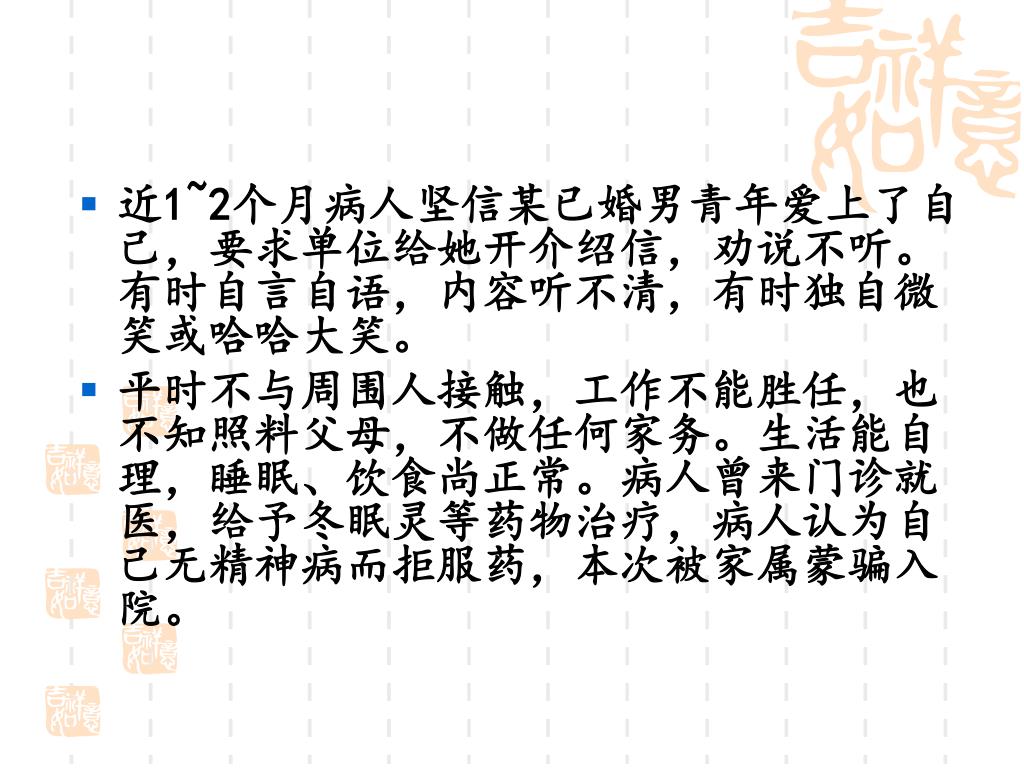 吉祥
如意
近1~2个月病人坚信某已婚男青年爱上了自
己，要求单位给她开介绍信，劝说不听。
有时自言自语，内容听不清，有时独自微
笑或哈哈大笑。
平时不与周围人接触，工作不能胜任，也
不知照料父母，不做任何家务。生活能自
理，睡眠、饮食尚正常。病人曾来门诊就
医，给予冬眠灵等药物治疗，病人认为自
己无精神病而拒服药，本次被家属蒙骗入
院。
吉祥
如意
吉祥
如意
吉祥
如意
吉祥
如意